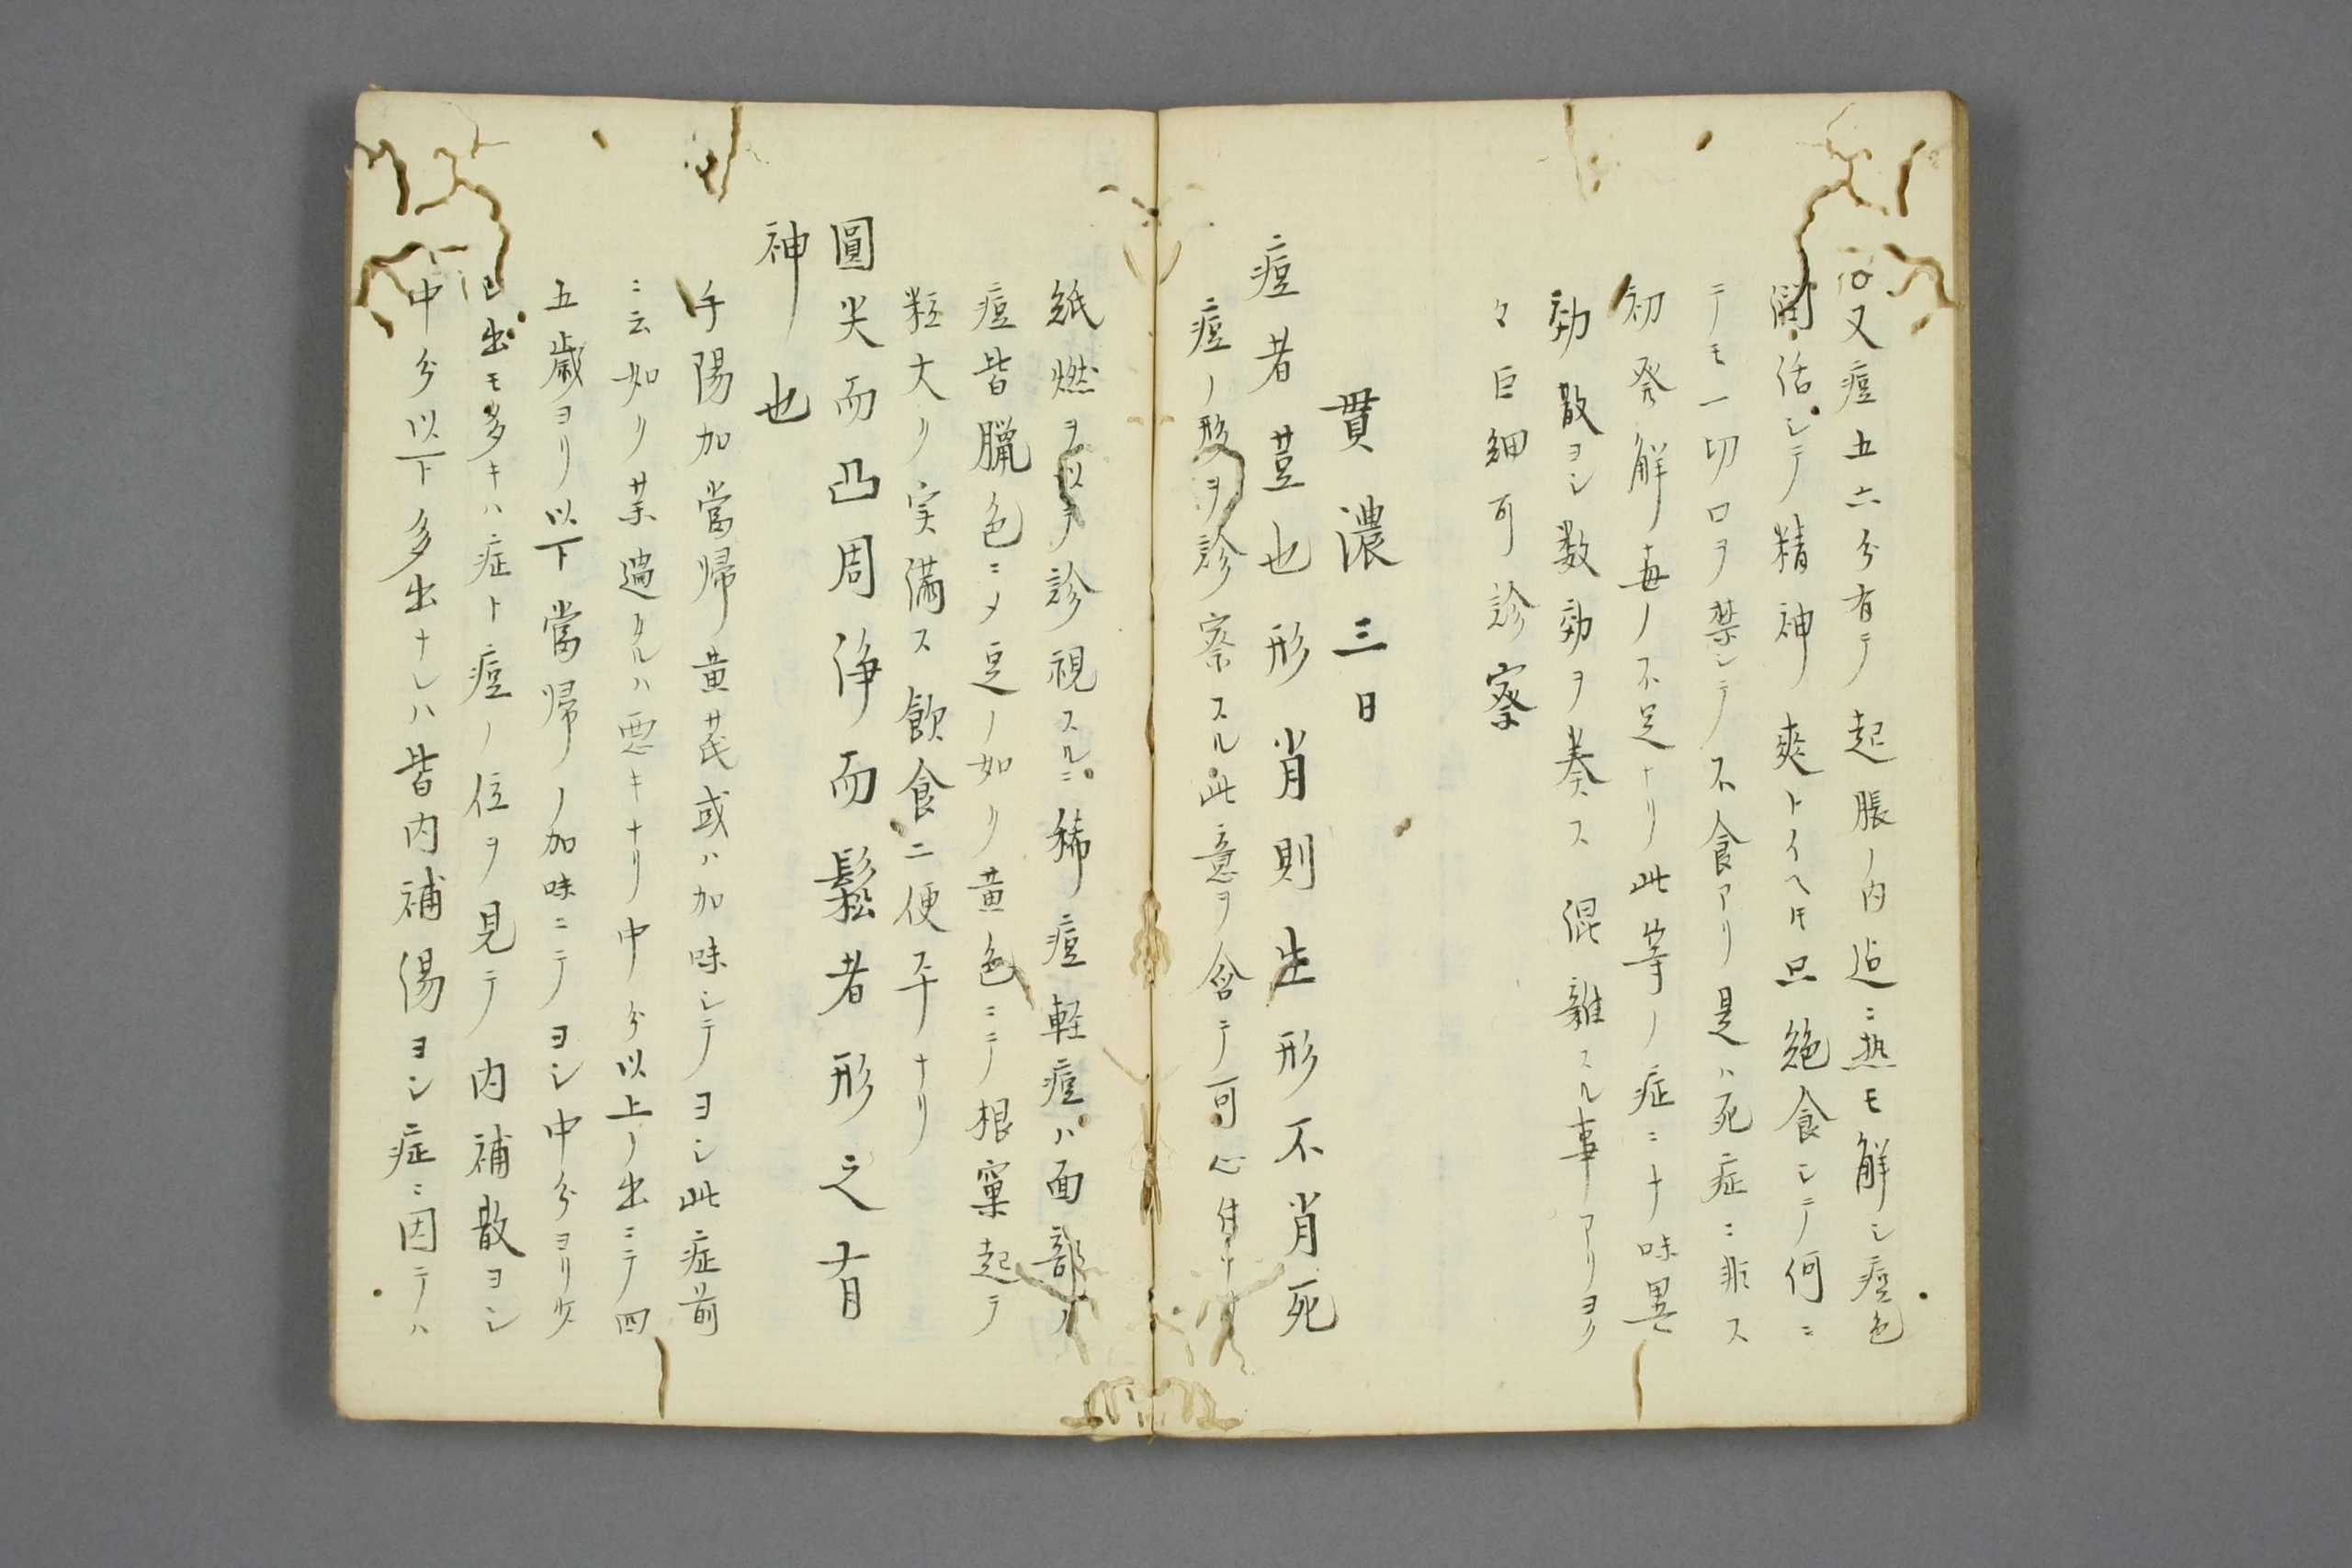 又痘五六分有テ起脹ノ内迠ニ热モ解シ痘色
潤活シテ精神爽トイヘ𪜈只絶食シテ何ニ
テモ一切口ヲ禁シテ不食アリ是ハ死症ニ非ス
初発解毒ノ不足ナリ此等ノ症ニ十味異
効散ヨシ数効ヲ奏ス混雑スル事アリヨク
々巨細可診察
貫濃三日
痘者荳也形肖則生形不肖死
痘ノ形ヲ診察スル此意ヲ含テ可心付
紙燃ヲ以テ診視スルニ稀痘軽痘ハ面部ノ
痘皆臘色ニ〆豆ノ如ク黄色ニテ根窠起テ
粒大ク実満ス飲食二便平ナリ
圓尖而凸周净而鬆者形之有
神也
手陽加當帰黄芪或ハ加味シテヨシ此症前
ニ云如ク薬過タルハ悪キナリ中分以上ノ出ニテ四
五歳ヨリ以下當帰ノ加味ニテヨシ中分ヨリ少
出モ多キハ症ト痘ノ位ヲ見テ内補散ヨシ
中分以下多出ナレハ皆内補湯ヨシ症ニ因テハ